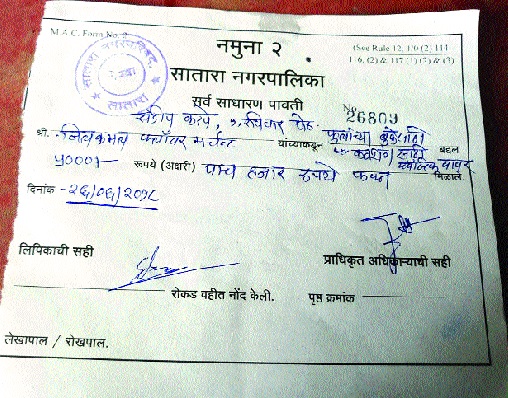 M A C. Form No. 2
नमुना २
(See Rule 12, 1/0 (2) 111
1-6, (2) & 117 (1) (2) & (3)
सातारा नगरपरिषद
सातारा
सातारा नगरपालिका
सर्व साधारण पावती
No 26809
संदीप करपे, शनिवार पेठ. फुलांच्या
श्री. फ्लॉवर मर्चंट यांच्याकडून बद्दल
५०००/- रुपये (अक्षरी) पाच हजार रुपये फक्त मिळाले.
दिनांक - २६/०६/२०१८
लिपिकाची सही
प्राधिकृत अधिकाऱ्याची सही
रोकड वहीत नोंद केली. पृष्ठ क्रमांक
लेखापाल / रोखपाल.